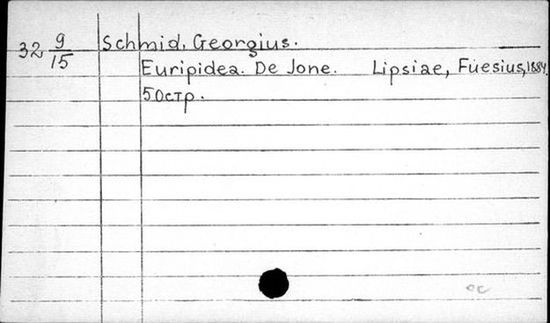 32 9/15 Schmid, Georgius.
Euripidea. De Jone. Lipsiae, Fuesius, 1884
50стр.
ес